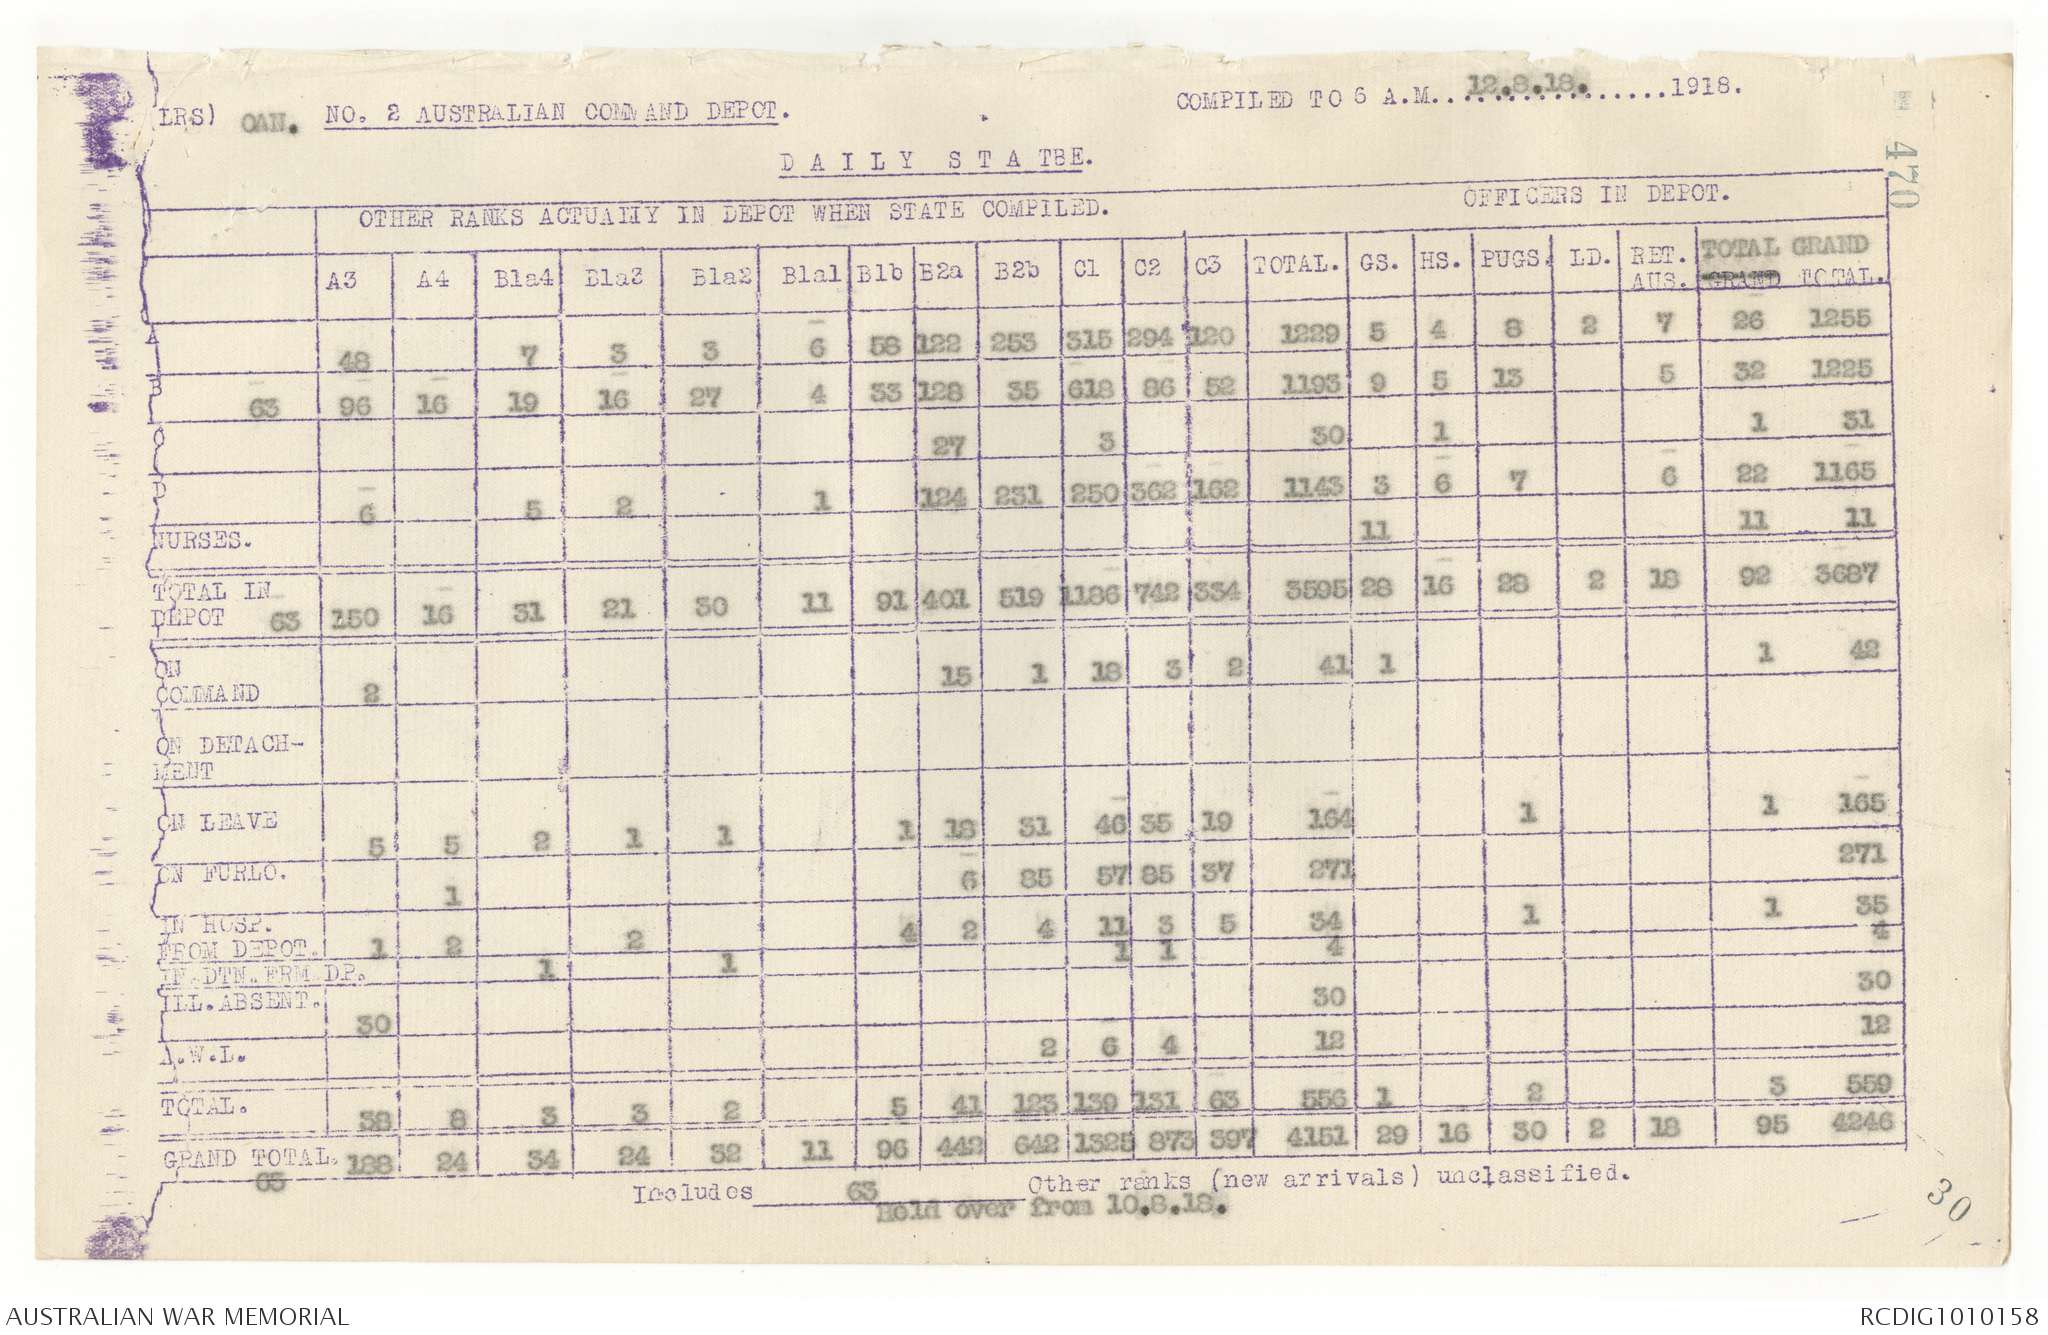 LRS) OAN. NO. 2 AUSTRALIAN COMMAND DEPOT. COMPILED TO 6 A.M. 12.8.18. 1918.
470
D A I L Y S T A TBE.
OTHER RANKS ACTUALLY IN DEPOT WHEN STATE COMPILED. OFFICERS IN DEPOT.
A3 A4 B1a4 B1a3 B1a2 B1a1 B1b B2a B2b C1 C2 C3 TOTAL. GS. HS. PUGS. LD. RET. AUS. TOTAL GRAND
GRAND TOTAL.
A 48 7 3 3 6 58 122 253 315 294 120 1229 5 4 8 2 7 26 1255
B 63 96 16 19 16 27 4 33 128 35 618 86 52 1193 9 5 13 5 32 1225
27 3 30 1 1 31
D 6 5 2 1 124 231 250 362 162 1143 3 6 7 6 22 1165
NURSES. 11 11 11
TOTAL IN
DEPOT 63 150 16 31 21 30 11 91 401 519 1186 742 334 3595 28 16 28 2 18 92 3687
ON
COMMAND 2 15 1 18 3 2 41 1 1 42
ON DETACH-
MENT
ON LEAVE 5 5 2 1 1 1 18 31 46 35 19 164 1 1 165
ON FURLO. 1 6 85 57 85 37 271 271
IN HOSP.
FROM DEPOT. 1 2 2 4 2 4 11 3 5 34 1 1 35
IN DTN. FRM DP. 1 1 1 1 4 4
ILL. ABSENT. 30 30 30
A.W.L. 2 6 4 12 12
TOTAL. 38 8 3 3 2 5 41 123 139 131 63 556 1 2 3 559
GRAND TOTAL. 63 188 24 34 24 32 11 96 442 642 1325 873 397 4151 29 16 30 2 18 95 4246
Includes 63 Other ranks (new arrivals) unclassified.
Held over from 10.8.18.
30
AUSTRALIAN WAR MEMORIAL RCDIG1010158